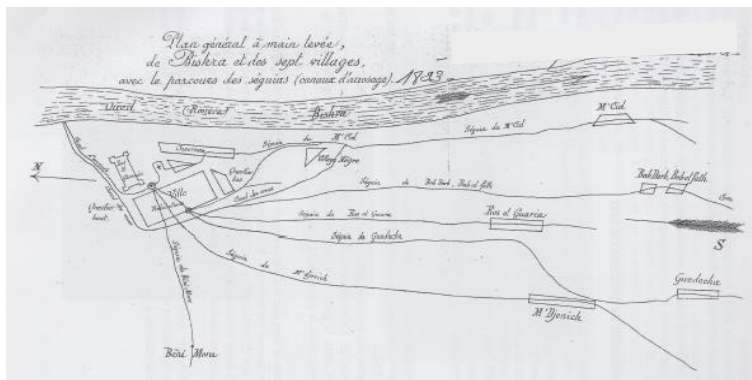 Plan général à main levée,
de Biskra et des sept villages,
avec le parcours des séguias (canaux d'arrosage). 18
Oued (Rivière) Biskra
M' Cid
Séguia de M' Cid
Séguia de M' Cid
Village Nègre
Ville
N
Séguia de Bab Dark, Bab el fath
Bab Dark, Bab el fath
Séguia de Ras el Guaria
Ras el Guaria
S
Séguia de Guedecha
Guedacha
Séguia de M' Djenich
M' Djenich
Séguia de Béni Mora
Béni Mora